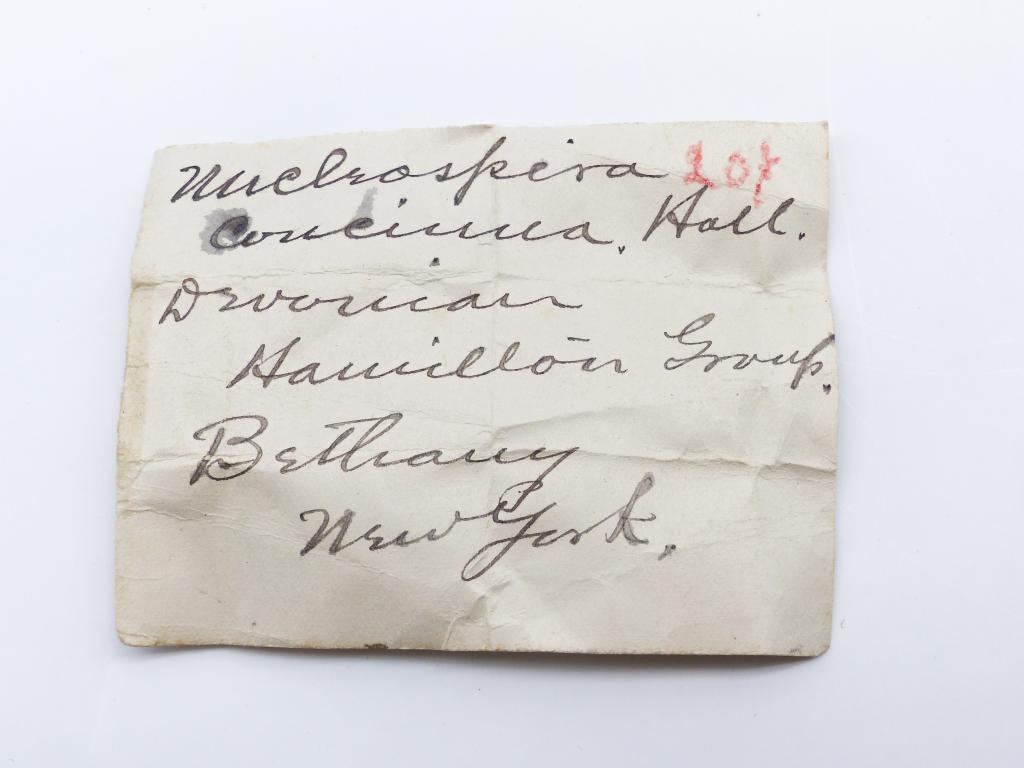 Nucleospira
Concinna. Hall.
Devonian
Hamilton Group.
Bethany
New York.